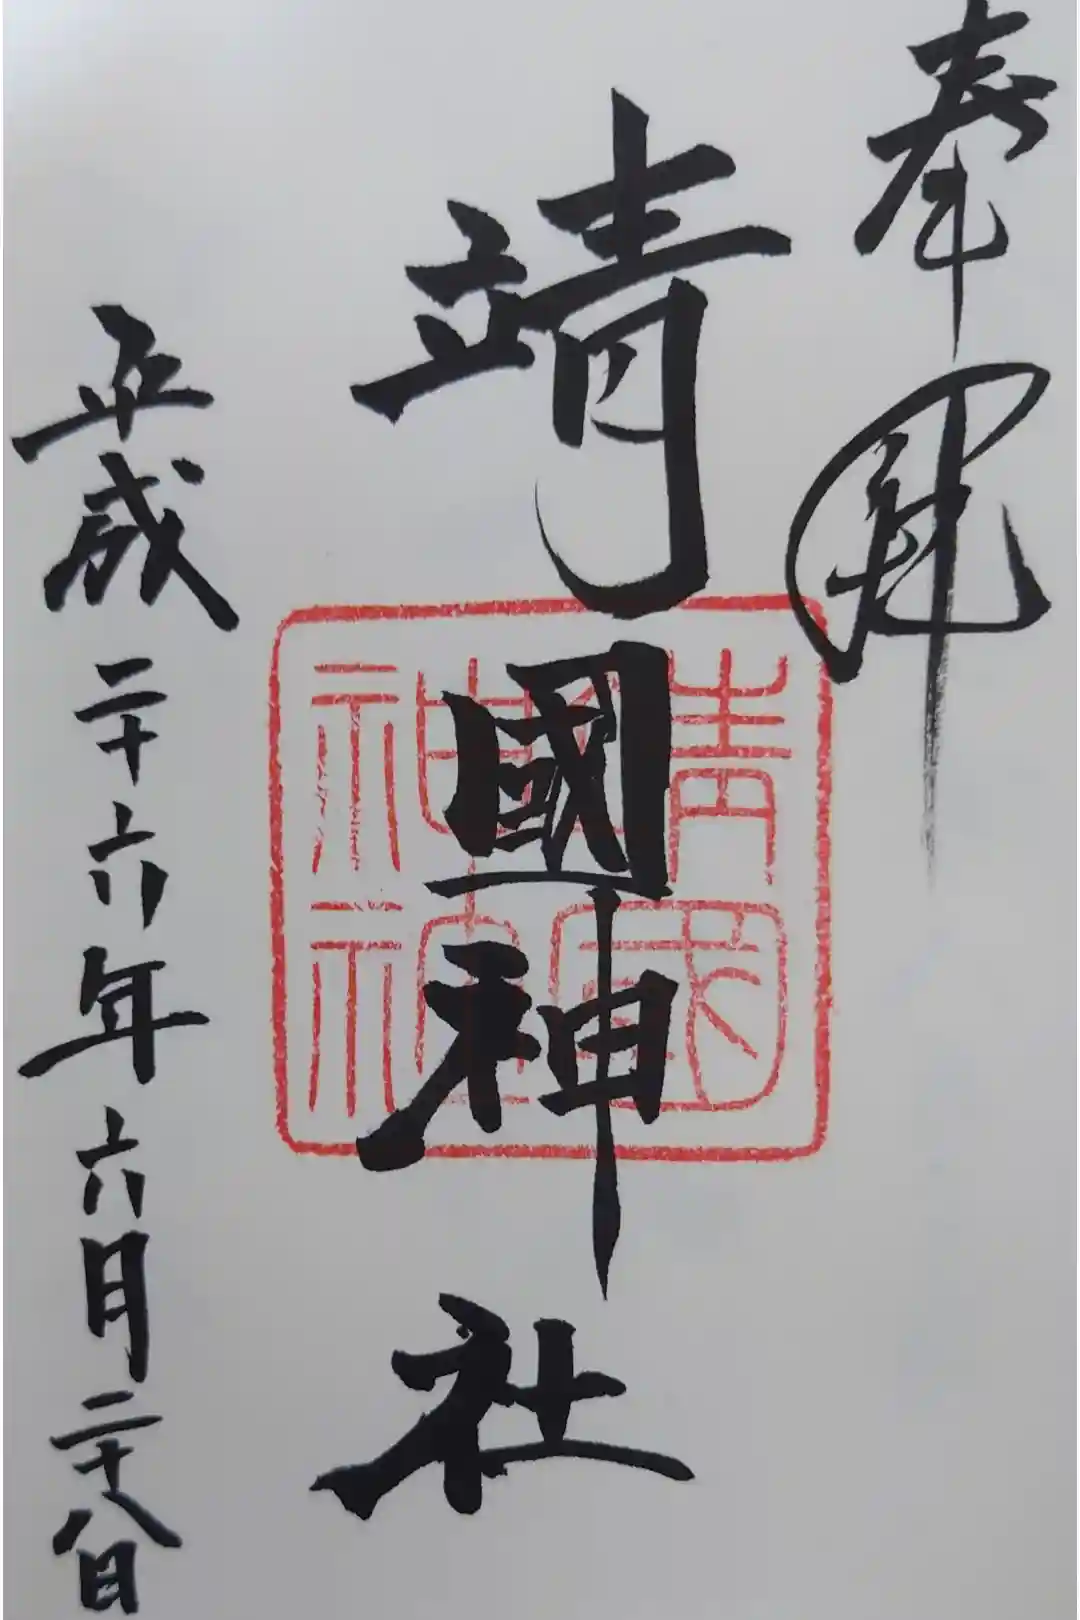 奉拝
靖國神社
靖國神社
平成二十六年六月二十八日